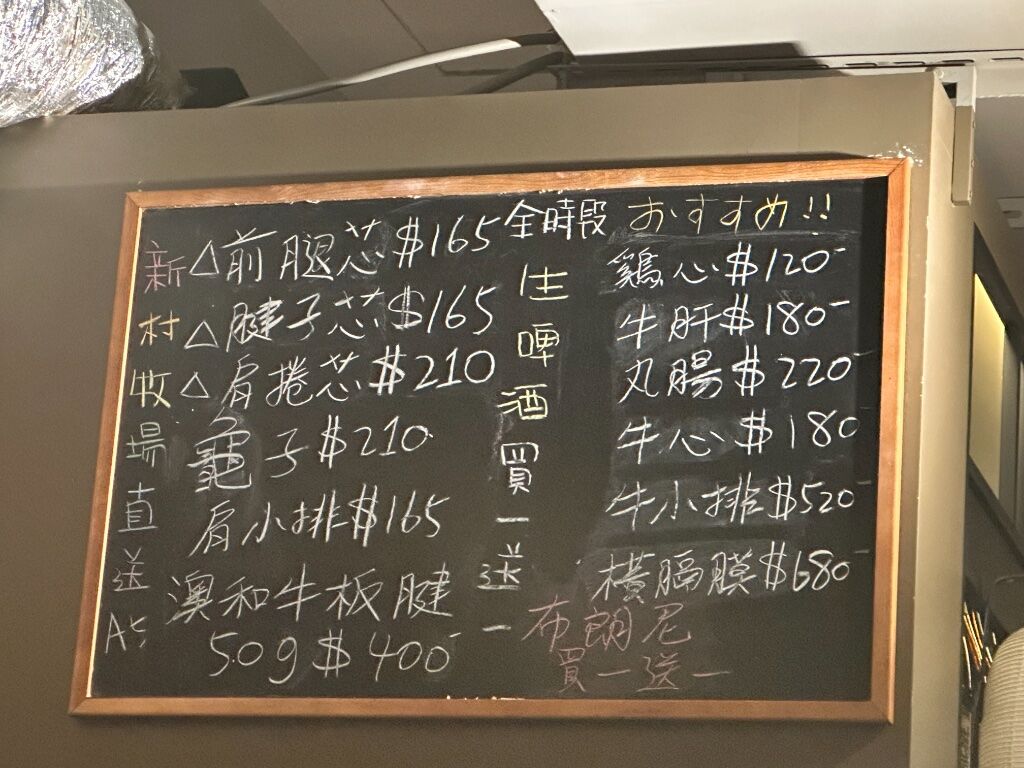 新村牧場直送A5
△前腿芯$165
△腱子芯$165
△肩捲芯$210
龜子$210
肩小排$165
澳和牛板腱
50g$400
全時段
生啤酒買一送一
おすすめ!!
鷄心$120
牛肝$180
丸腸$220
牛心$180
牛小排$520
橫膈膜$680
布朗尼
買一送一